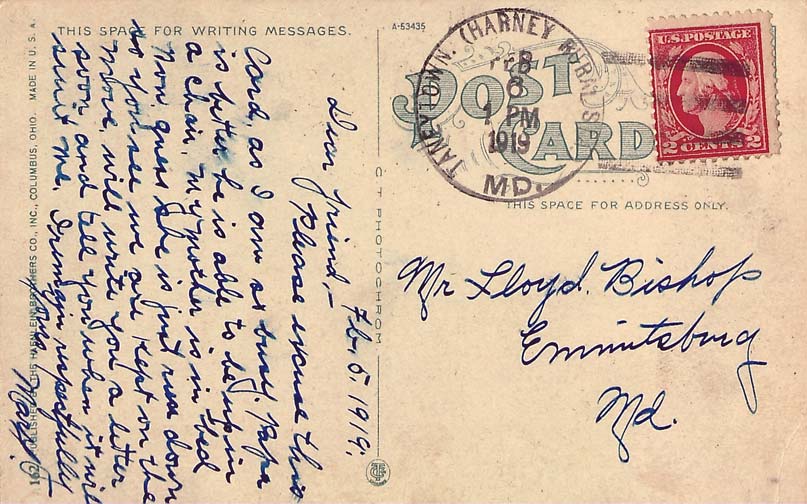 THIS SPACE FOR WRITING MESSAGES.
A-53435
Feb. 5. 1919.
Dear friend,-
Please excuse this
Card, as I am so busy. Papa
is better, he is able to be up in
a chair. My mother is in bed
Now, guess she is just run down
so you see we are kept on the
move, will write you a letter
soon and tell you when it will
suit me. I remain respectfully
yours,
Mary
162 PUBLISHED BY THE HAENLEIN BROTHERS CO., INC., COLUMBUS, OHIO. MADE IN U.S.A.
C.T. PHOTOCHROM
POST CARD
TANEYTOWN. (HARNEY RURAL STA
FEB
6
1 PM
1919
MD.
U.S. POSTAGE
2 CENTS 2
THIS SPACE FOR ADDRESS ONLY.
Mr Lloyd. Bishop
Emmitsburg
Md.